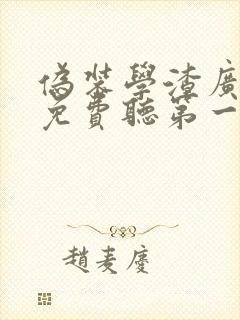 偽裝學渣廣
免費聽第一
趙麦慶